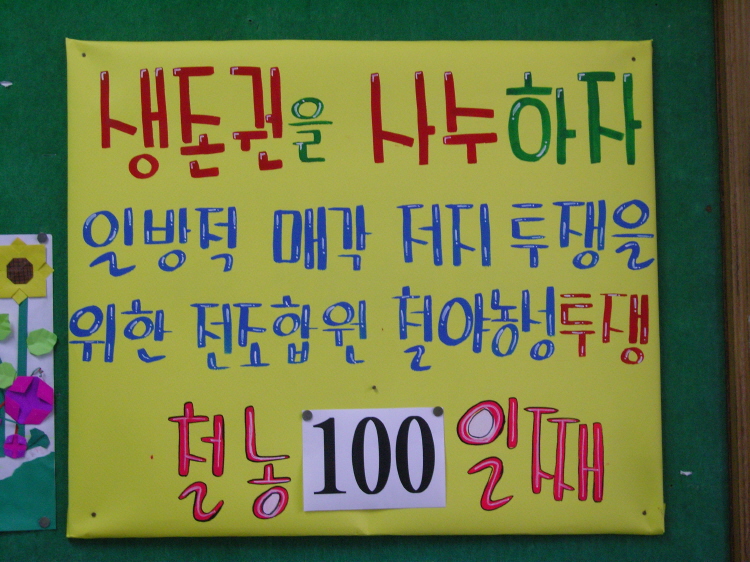 생존권을 사수하자
일방적 매각 저지 투쟁을
위한 전조합원 철야농성투쟁
철농 100 일째